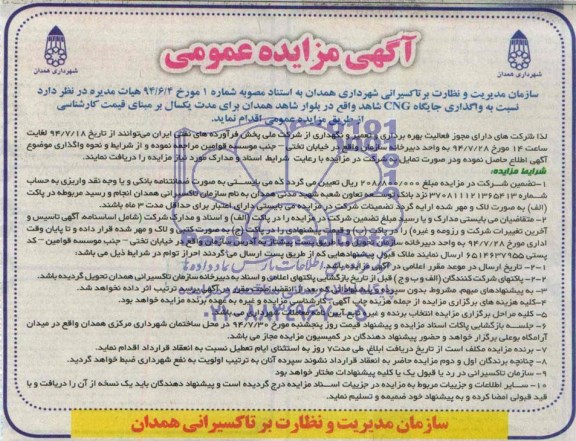 آگهی مزایده عمومی
شهرداری همدان
شهرداری همدان
سازمان مدیریت و نظارت بر تاکسیرانی شهرداری همدان به استناد مصوبه شماره ۱ مورخ ۹۴/۶/۴ هیات مدیره در نظر دارد
نسبت به واگذاری جایگاه CNG شاهد واقع در بلوار شاهد همدان برای مدت یکسال بر مبنای قیمت کارشناسی
از طریق مزایده عمومی اقدام نماید.
لذا شرکت های دارای مجوز فعالیت بهره برداری و تعمیر و نگهداری از شرکت ملی پخش فرآورده های نفتی ایران می‌توانند از تاریخ ۹۴/۷/۱۸ لغایت
ساعت ۱۴ مورخ ۹۴/۷/۲۸ به واحد دبیرخانه سازمان واقع در خیابان تختی – جنب موسسه قوامین مراجعه نموده و از شرایط و نحوه واگذاری موضوع
آگهی اطلاع حاصل نموده ودر صورت تمایل به شرکت در مزایده با رعایت شرایط اسناد و مدارک مورد نیاز مزایده را دریافت نمایند.
شرایط مزایده:
۱-تضمین شرکت در مزایده مبلغ ۲۰۸/۸۰۰/۰۰۰ ریال تعیین می گردد که می بایستی به صورت ضمانتنامه بانکی و یا وجه نقد واریزی به حساب
شماره نزد بانک توسعه تعاون شعبه شهید مدنی همدان به نام سازمان تاکسیرانی همدان انجام و رسید مربوطه در پاکت
(الف) به صورت لاک و مهر شده ارایه گردد. تضمینات شرکت در مزایده می بایستی دارای اعتبار برای حداقل مدت ۳ ماه باشند.
۲- متقاضیان می بایستی مدارک و یا رسید مبلغ تضمین شرکت در مزایده را در پاکت (الف) و اسناد و مدارک شرکت (شامل اساسنامه، آگهی تاسیس و
آخرین تغییرات شرکت و رزومه و غیره) را در پاکت (ب) و قیمت پیشنهادی را در پاکت (ج) به صورت لاک و مهر شده قرار داده و تا پایان وقت
اداری مورخ ۹۴/۷/۲۸ به واحد دبیرخانه سازمان تحویل و یا از طریق پست پیشتاز به آدرس سازمان واقع در خیابان تختی – جنب موسسه قوامین – کد
پستی ۶۵۱۴۶۳۷۹۵۵ ارسال نمایند ملاک قبول پیشنهادهایی که از طریق پست ارسال می گردند احراز توام در شرایط ذیل می باشد:
۱-۲- تاریخ ارسال در موعد مقرر اعلامی در آگهی مزایده باشد.
۲-۲- پاکتهای شرکت کنندگان (الف و ب و ج) قبل از تاریخ بازگشایی پاکتهای اعلامی و اسناد به دبیرخانه سازمان تاکسیرانی همدان تحویل گردیده باشد.
۳- به پیشنهادهای مبهم، مشروط، بدون سپرده و پیشنهاداتی که بعد از انقضاء مدت مقرر در آگهی برسد ترتیب اثر داده نخواهد شد.
۴-کلیه هزینه های برگزاری مزایده از جمله هزینه چاپ آگهی، کارشناسی مزایده و غیره به عهده برنده مزایده خواهد بود.
۵- کلیه مراحل برگزاری مزایده انتخاب برنده و غیره تابع آیین نامه معاملات شهرداری می باشد.
۶- جلسه بازگشایی پاکات اسناد مزایده و پیشنهاد قیمت روز پنجشنبه مورخ ۹۴/۷/۳۰ در محل ساختمان شهرداری مرکزی همدان واقع در میدان
آرامگاه بوعلی برگزار خواهد و حضور پیشنهاد دهندگان در کمیسیون مزایده مجاز می باشد.
۷- برنده مزایده مکلف است از تاریخ دریافت ابلاغ، طی مدت۷ روز به استثنای ایام تعطیل نسبت به انعقاد قرارداد اقدام نماید.
۸- چنانچه برندگان اول و دوم مزایده حاضر به انعقاد قرارداد نشوند سپرده آنان به ترتیب اولویت به نفع شهرداری ضبط خواهد گردید.
۹- سازمان تاکسیرانی در رد یا قبول یک یا کلیه پیشنهادات مختار خواهد بود
۱۰- سایر اطلاعات و جزییات مربوط به مزایده در جزییات اسناد مزایده درج گردیده است و پیشنهاد دهندگان باید یک نسخه از آن را دریافت و با
قید قبولی امضا کرده و به پیشنهاد خود ضمیمه و تسلیم نماید.
سازمان مدیریت و نظارت بر تاکسیرانی همدان